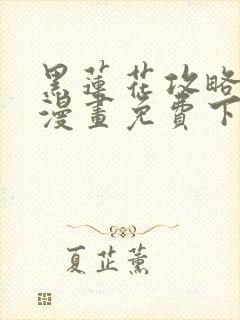 黑蓮花攻略
漫畫免費下
夏芷薰